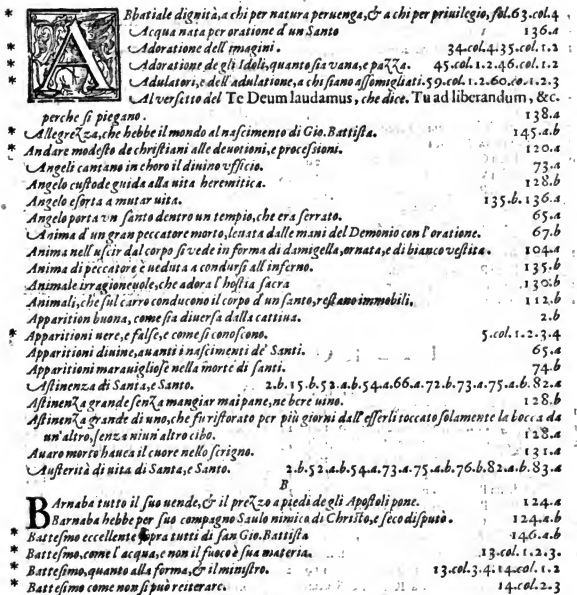 * ABbatiale dignità, a chi per natura peruenga, & a chi per priuilegio, fol. 63. col. 4
Acqua nata per oratione d'un Santo 136.a
* Adoratione dell'imagini. 34.col.4.35.col.1.2
* Adoratione de gli Idoli, quanto sia vana, e pazza. 45.col.1.2.46.col.1.2
* Adulatori, e dell'adulatione, a chi siano assomigliati. 59.col.1.2.60.co.1.2.3
Al versetto del Te Deum laudamus, che dice. Tu ad liberandum, &c.
perche si piegano. 138.a
* Allegrezza, che hebbe il mondo al nascimento di Gio. Battista. 145.a.b
* Andare modesto de christiani alle deuotioni, e processioni. 120.a
Angeli cantano in choro il diuino vfficio. 73.a
Angelo custode guida alla uita heremitica. 128.b
Angelo esorta a mutar uita. 135.b.136.a
Angelo porta vn santo dentro un tempio, che era serrato. 65.a
Anima d'un gran peccatore morto, leuata dalle mani del Demonio con l'oratione. 67.b
Anima nell'uscir dal corpo si vede in forma di damigella, ornata, e di bianco vestita. 104.a
Anima di peccatore è ueduta a condursi all'inferno. 135.b
Animale irragioneuole, che adora l'hostia sacra 130.b
Animali, che sul carro conducono il corpo d'un santo, restano immobili. 112.b
Apparition buona, come sia diuersa dalla cattiua. 2.b
* Apparitioni uere, e false, e come si conoscono. 5.col.1.2.3.4
Apparitioni diuine, auanti i nascimenti de' Santi. 65.a
Apparitioni marauigliose nella morte di santi. 74.b
* Astinenza di Santa, e Santo. 2.b.15.b.52.a.b.54.a.66.a.72.b.73.a.75.a.b.82.a
Astinenza grande senza mangiar mai pane, ne bere uino. 128.b
Astinenza grande di uno, che fu ristorato per più giorni dall'esserli toccato solamente la bocca da
un'altro, senza niun altro cibo. 128.a
Auaro morto hauea il cuore nello scrigno. 131.a
* Austerità di uita di Santa, e Santo. 2.b.52.a.b.54.a.73.a.75.a.b.76.b.82.a.b.83.a
B
BArnaba tutto il suo uende, & il prezzo a piedi degli Apostoli pone. 124.a
Barnaba hebbe per suo compagno Saulo nimico di Christo, e seco disputò. 124.a.b
* Battesmo eccellente sopra tutti di san Gio. Battista 146.a.b
* Battesmo, come l'acqua, e non il fuoco è sua materia. 13.col.1.2.3.
* Battesmo, quanto alla forma, & il ministro. 13.col.3.4.14.col.1.2
* Battesmo come non si può reiterare. 14.col.2.3